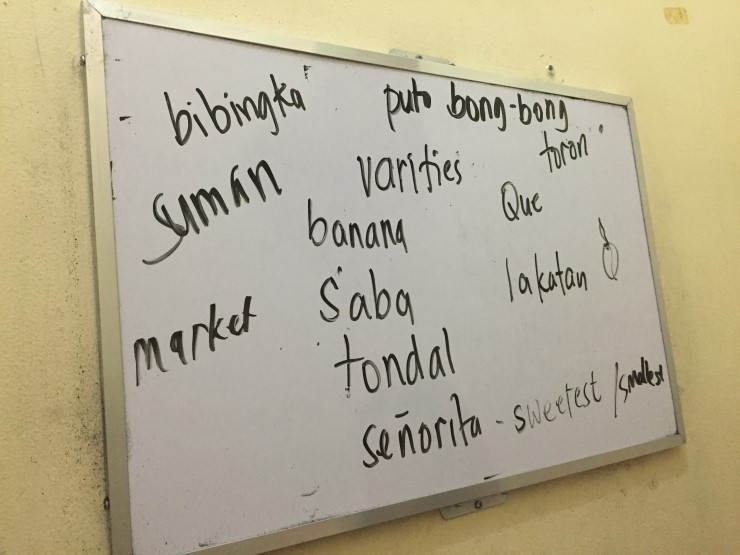 bibingka puto bong-bong
toron
suman varities
banana Que
saba lakatan
market
tondal
señorita - sweetest /smallest